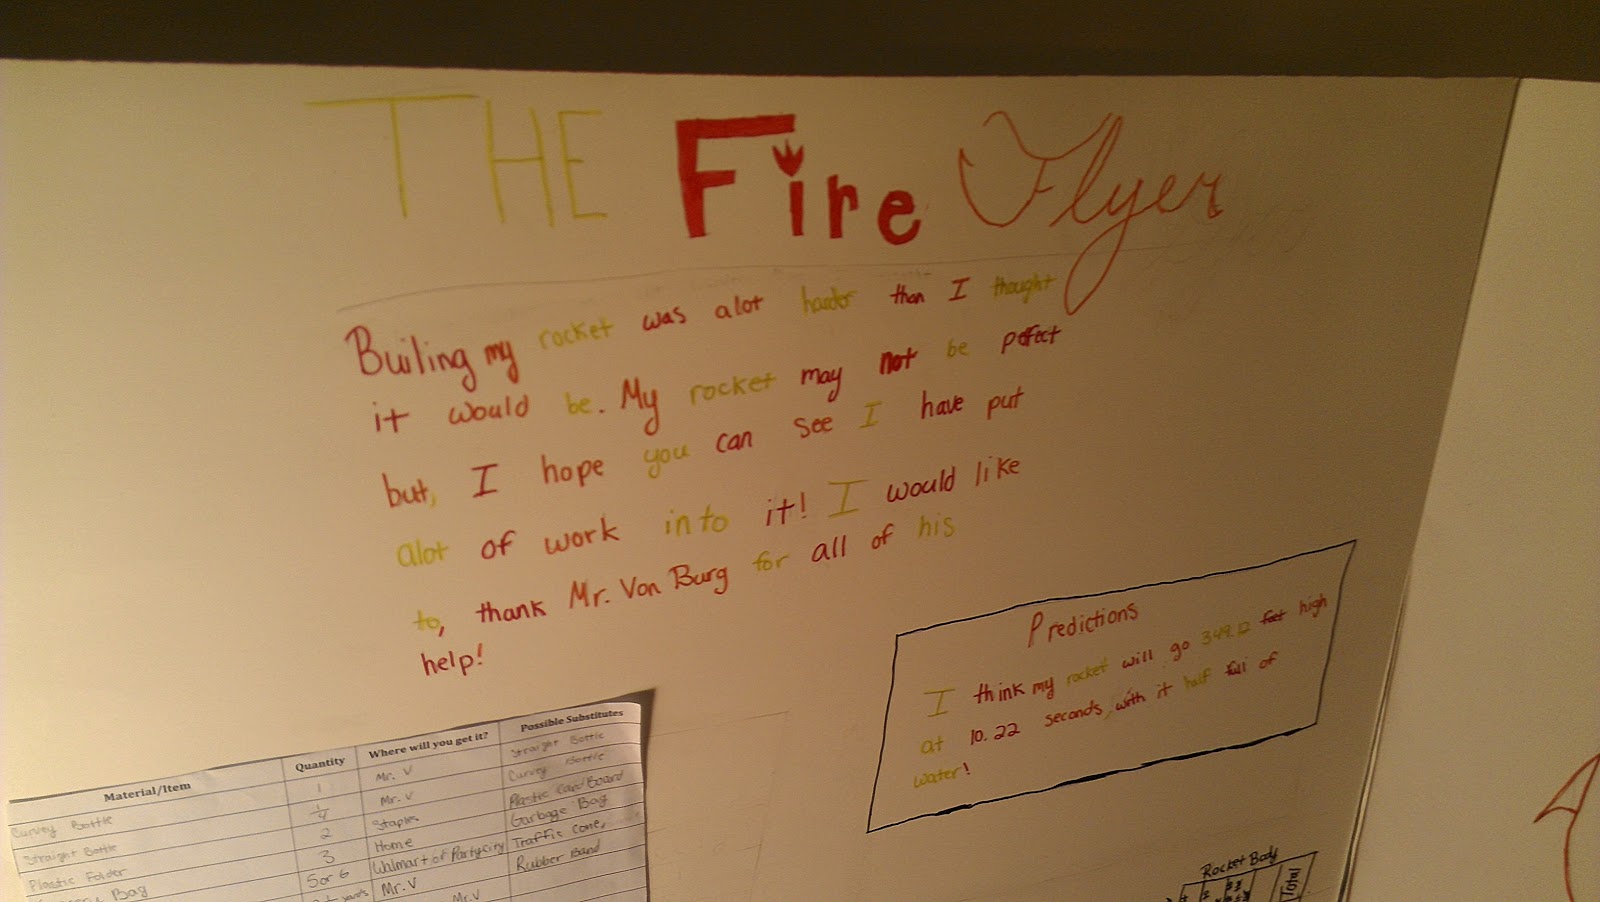 THE Fire Flyer
Builing my rocket was alot harder than I thought
it would be. My rocket may not be pefect
but, I hope you can see I have put
alot of work into it! I would like
to, thank Mr. Von Burg for all of his
help!
Predictions
I think my rocket will go 349.12 feet high
at 10.22 seconds, with it half full of
water!
Material/Item Quantity Where will you get it? Possible Substitutes
Curvey Bottle 1 Mr. V Straight Bottle
Straight Bottle 1/4 Mr. V Curvey Bottle
Plastic Folder 2 Staples Plastic CardBoard
Bag 3 Home Garbage Bag
5 or 6 Walmart or Partycity Traffic Cone,
yards Mr. V Rubber Band
Mr. V
Rocket Body
Total